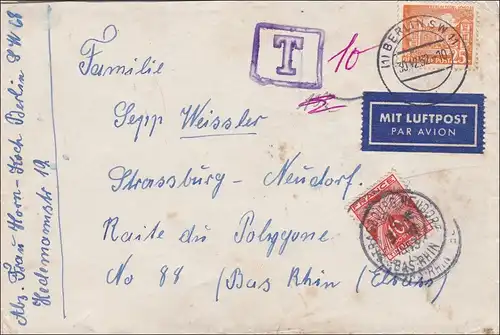 Abs. Frau Horn-Koch Berlin SW 68
Hedemannstr. 12
Familie
Sepp Weissler
Strassburg-Neudorf.
Raite du Polygone
No 88 (Bas Rhin) (Elsass)
T
10
(1) BERLIN SW 11
MIT LUFTPOST
PAR AVION
FRANCE
BAS-RHIN